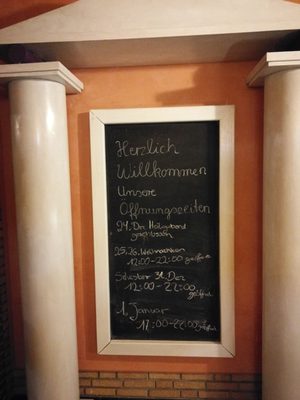 Herzlich
Willkommen
Unsere
Öffnungszeiten
24. Dez Heiligabend
geschlossen
25.26. Weihnachten
12:00-22:00 geöffnet
Silvester 31. Dez
12:00-22:00
geöffnet
1. Januar
17:00-22:00 geöffnet